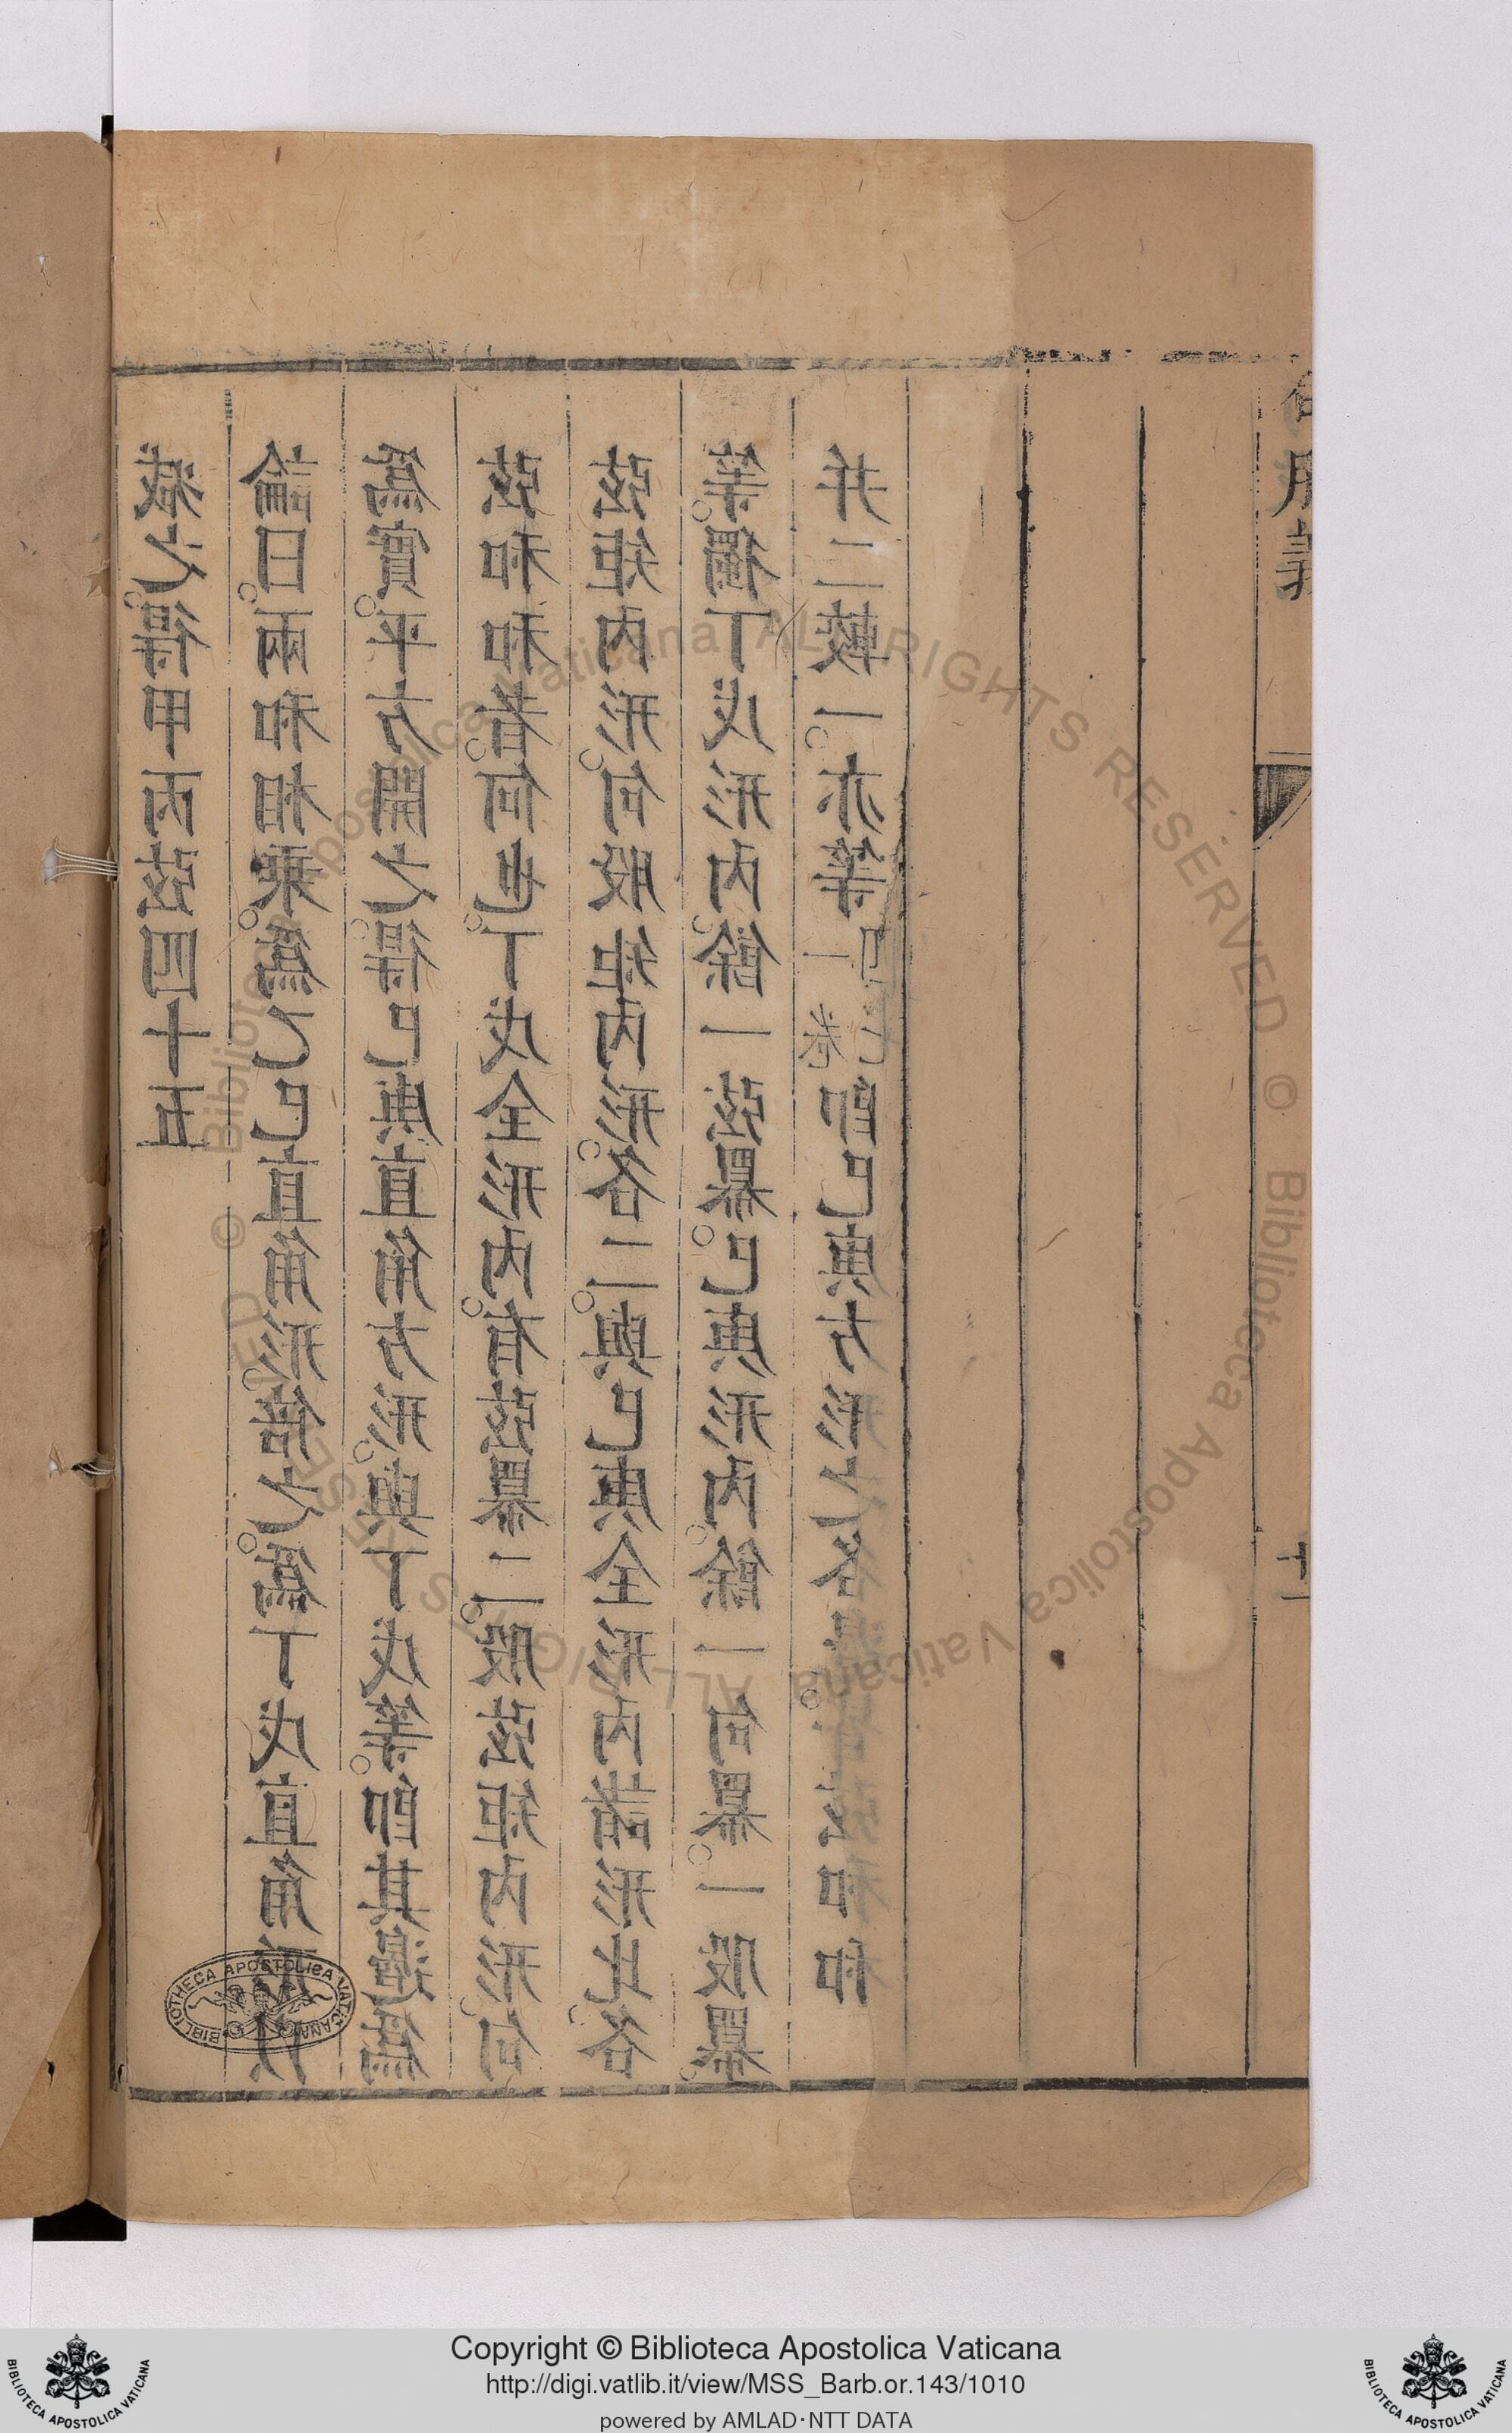 減之。得甲丙弦四十五
論曰。兩和相乘。爲乙巳直角形。倍之。爲丁戊直角形以
爲實。平方開之。得巳庚直角方形。與丁戊等。卽其邊爲
弦和和者。何也。丁戊全形內。有弦冪二。股弦矩內形。句
弦矩內形。句股矩內形。各二。與巳庚全形內諸形比。各
等。獨丁戊形內。餘一弦冪。巳庚形內。餘一句冪。一股冪。
幷二較一。亦等一卷四七卽巳庚方形之各弦和和
句股義
十一
BIBLIOTHECA APOSTOLICA VATICANA
© Biblioteca Apostolica Vaticana ALL RIGHTS RESERVED © Biblioteca Apostolica Vaticana ALL RIGHTS RESERVED
Copyright © Biblioteca Apostolica Vaticana
http://digi.vatlib.it/view/MSS_Barb.or.143/1010
powered by AMLAD·NTT DATA
BIBLIOTECA APOSTOLICA VATICANA
BIBLIOTECA APOSTOLICA VATICANA